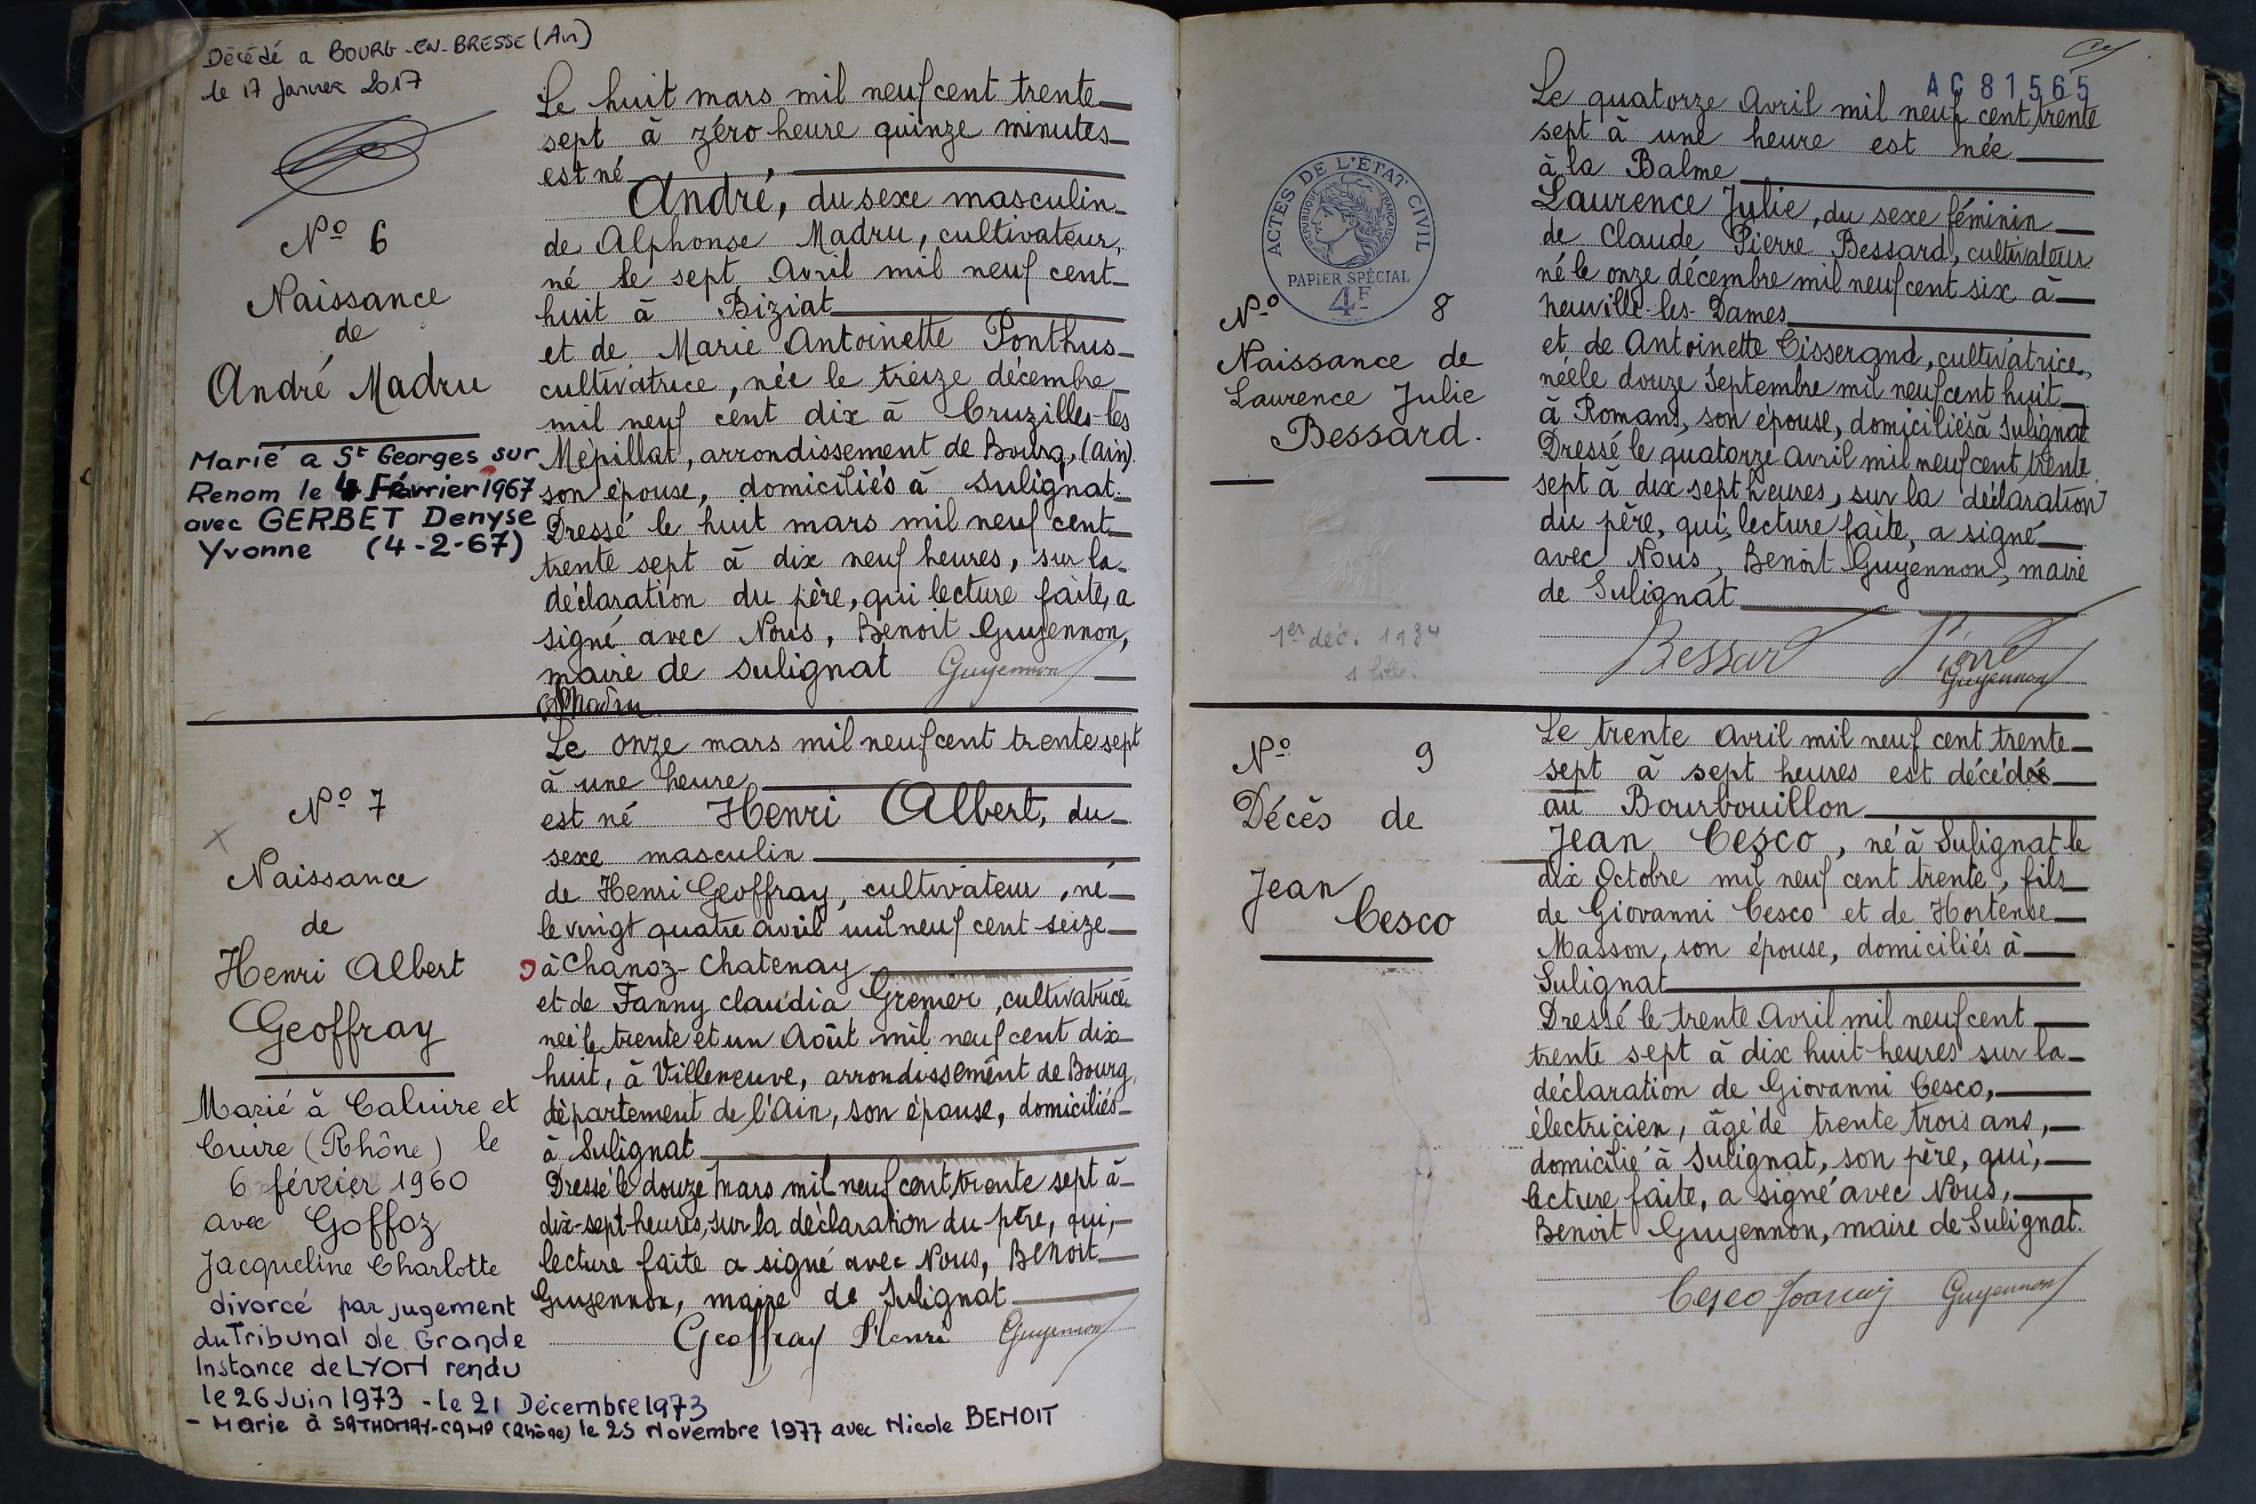 Décédé a BOURG-EN-BRESSE (Ain)
le 17 Janvier 2017
Nº 6
Naissance
de
André Madru
Marié a St Georges sur
Renom le 4 Février 1967
avec GERBET Denyse
Yvonne (4-2-67)
Le huit mars mil neuf cent trente
sept à zéro heure quinze minutes
est né
André, du sexe masculin
de Alphonse Madru, cultivateur,
né le sept Avril mil neuf cent
huit à Biziat
et de Marie Antoinette Ponthus
cultivatrice, née le treize décembre
mil neuf cent dix à Cruzilles-les
Mépillat, arrondissement de Bourg, (Ain)
son épouse, domiciliés à Sulignat.
Dressé le huit mars mil neuf cent
trente sept à dix neuf heures, sur la
déclaration du père, qui lecture faite, a
signé avec Nous, Benoit Guyennon,
maire de Sulignat Guyennon
Madru
Nº 7
Naissance
de
Henri Albert
Geoffray
Marié à Caluire et
Cuire (Rhône) le
6 février 1960
avec Goffoz
Jacqueline Charlotte
divorcé par jugement
du Tribunal de Grande
Instance de LYON rendu
le 26 Juin 1973 - le 21 Décembre 1973
- Marie à SATHONAY-CAMP (Rhône) le 25 Novembre 1977 avec Nicole BENOIT
Le onze mars mil neuf cent trente sept
à une heure
est né Henri Albert, du
sexe masculin
de Henri Geoffray, cultivateur, né
le vingt quatre avril mil neuf cent seize
à Chanoz-Chatenay
et de Fanny Claudia Gremer, cultivatrice
née le trente et un Août mil neuf cent dix
huit, à Villeneuve, arrondissement de Bourg,
département de l'Ain, son épouse, domiciliés
à Sulignat
Dressé le douze Mars mil neuf cent trente sept à
dix-sept heures, sur la déclaration du père, qui,
lecture faite a signé avec Nous, Benoit
Guyennon, maire de Sulignat
Geoffray Henri Guyennon
AC 81565
ACTES DE L'ÉTAT CIVIL
RÉPUBLIQUE FRANÇAISE
PAPIER SPÉCIAL
4F
Nº 8
Naissance de
Laurence Julie
Bessard.
1er déc. 1934
Le quatorze Avril mil neuf cent trente
sept à une heure est née
à la Balme
Laurence Julie, du sexe féminin
de Claude Pierre Bessard, cultivateur
né le onze décembre mil neuf cent six à
neuville-les-Dames
et de Antoinette Tisserand, cultivatrice,
née le douze Septembre mil neuf cent huit
à Romans, son épouse, domiciliés à Sulignat
Dressé le quatorze Avril mil neuf cent trente
sept à dix sept heures, sur la déclaration
du père, qui, lecture faite, a signé
avec Nous, Benoit Guyennon, maire
de Sulignat
Bessard Pierre
Guyennon
Nº 9
Décès de
Jean
Cesco
Le trente Avril mil neuf cent trente
sept à sept heures est décédé
au Bourbouillon
Jean Cesco, né à Sulignat le
dix Octobre mil neuf cent trente, fils
de Giovanni Cesco et de Hortense
Masson, son épouse, domiciliés à
Sulignat
Dressé le trente Avril mil neuf cent
trente sept à dix huit heures sur la
déclaration de Giovanni Cesco,
électricien, âgé de trente trois ans,
domicilié à Sulignat, son père, qui,
lecture faite, a signé avec Nous,
Benoit Guyennon, maire de Sulignat.
Cesco Guyennon